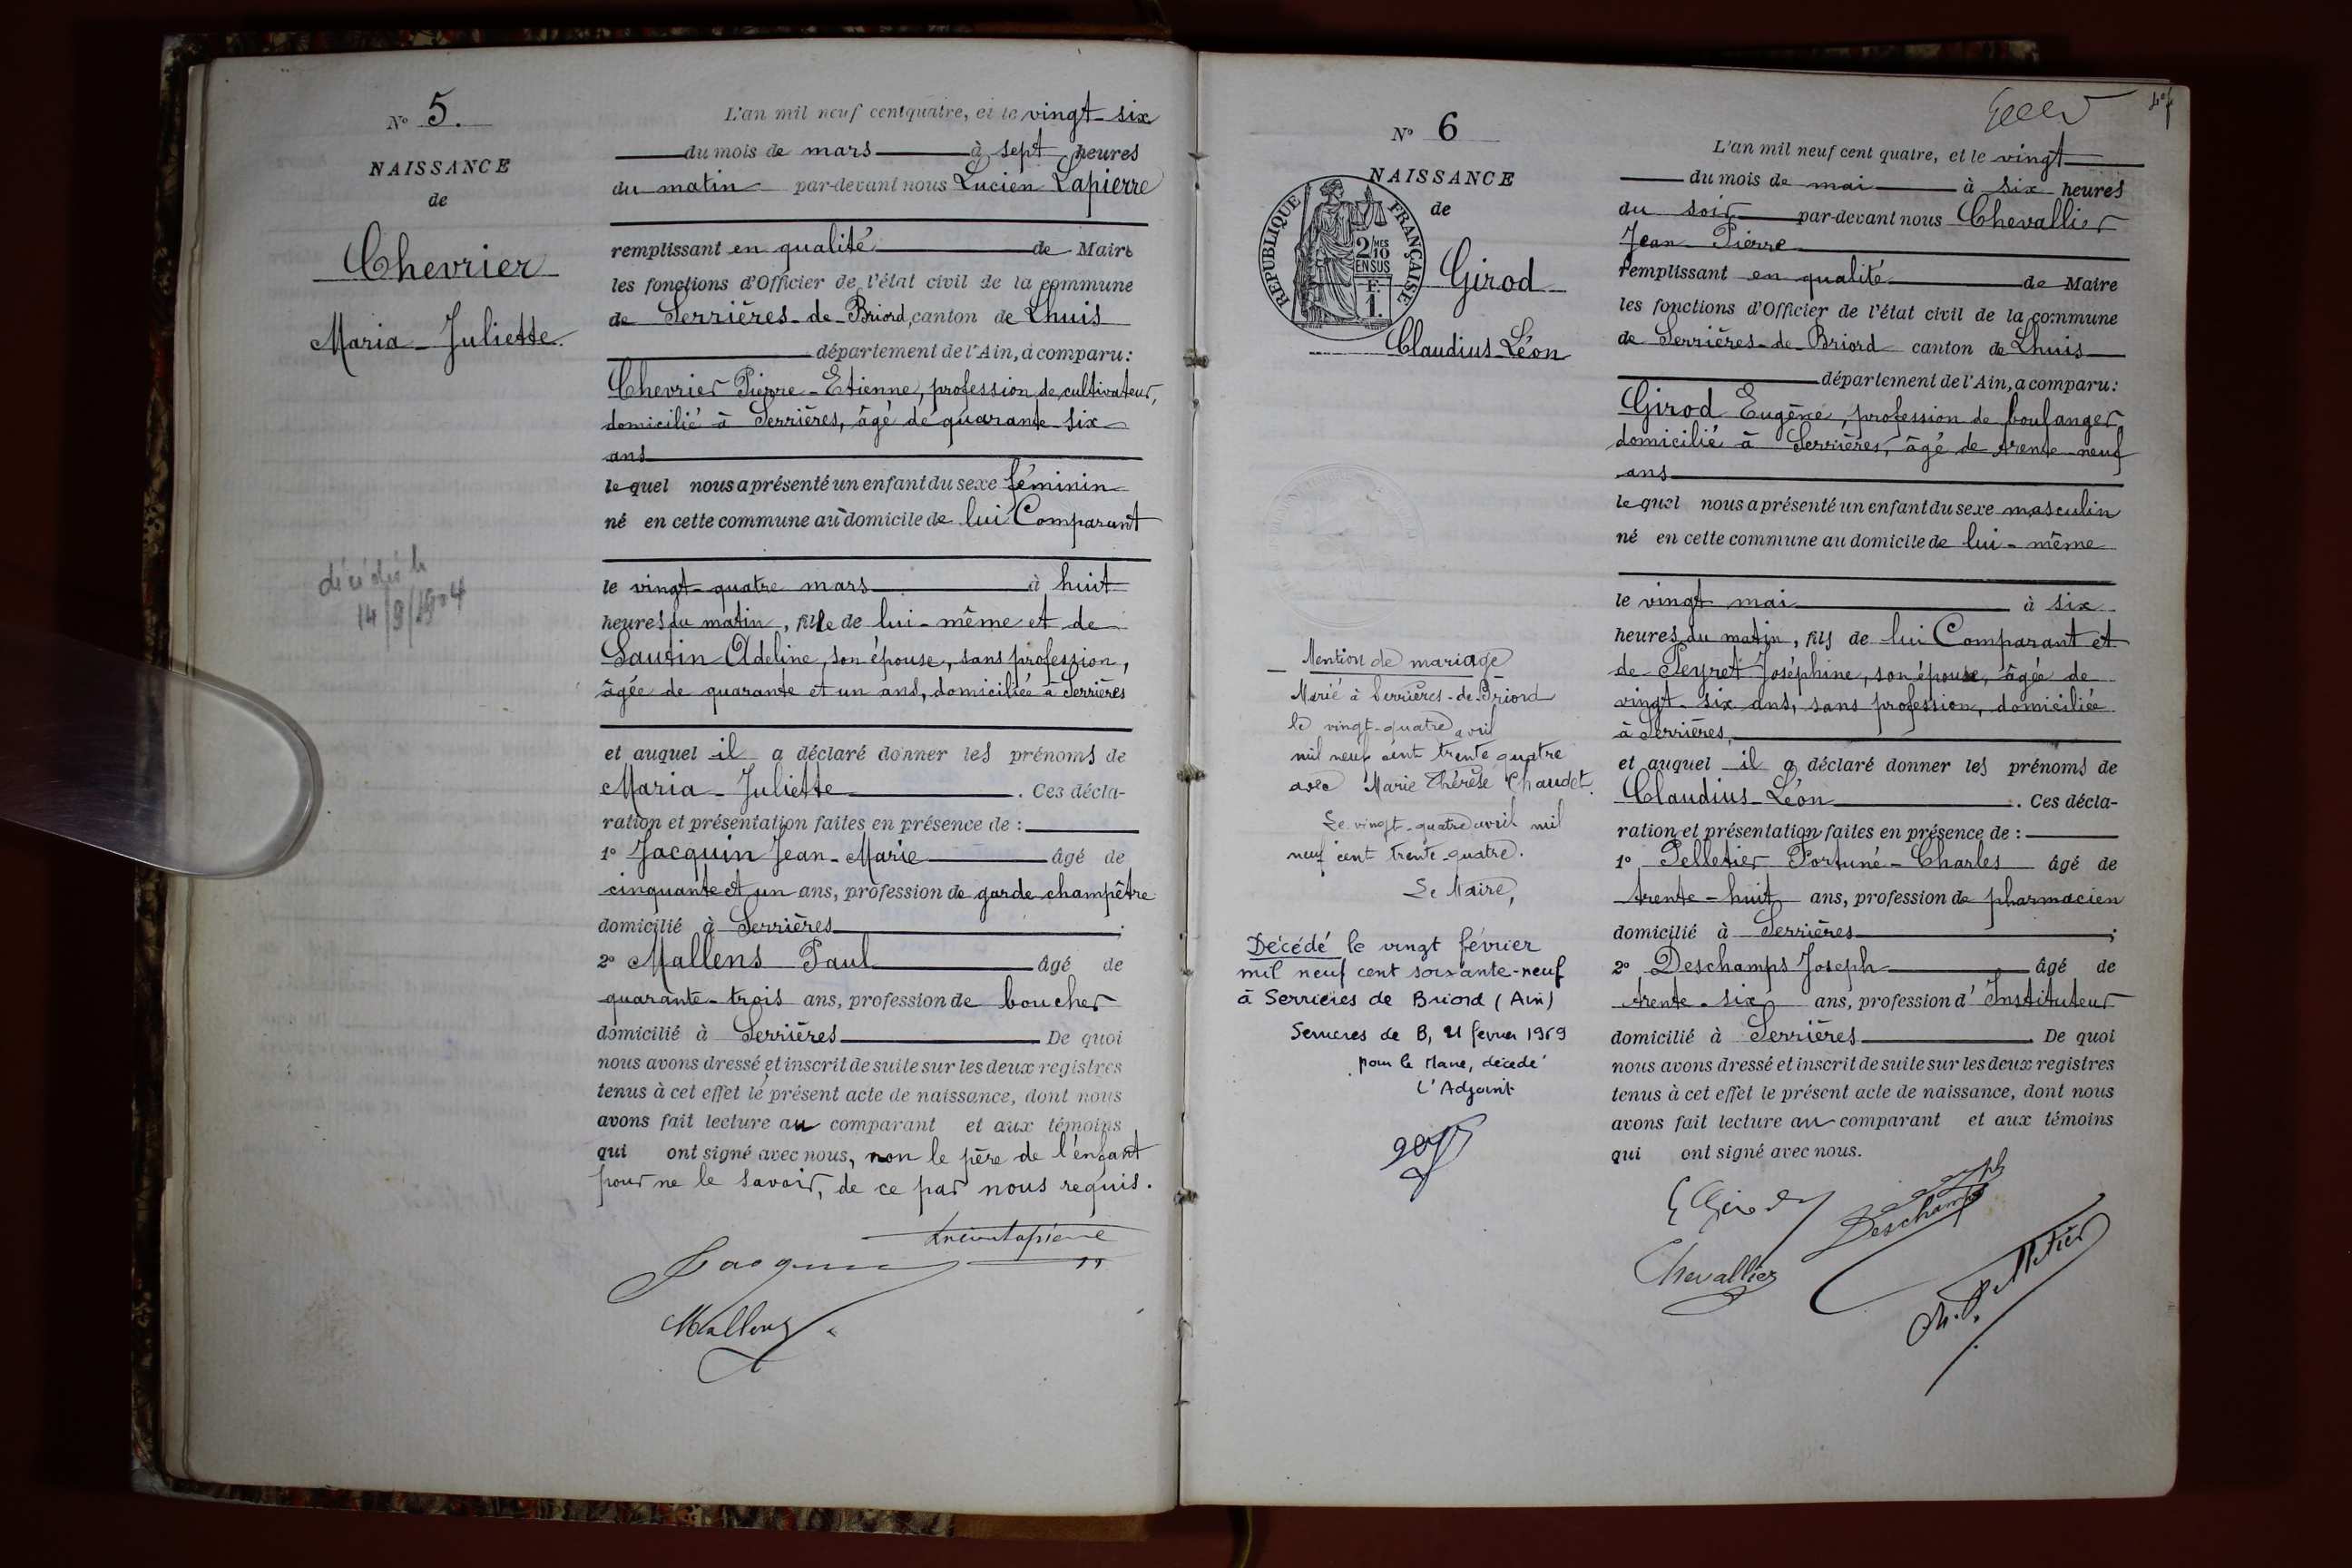 N° 5.
NAISSANCE
de
Chevrier
Maria-Juliette.
décédée le
14/9/1904
L'an mil neuf cent quatre, et le vingt-six
du mois de mars à sept heures
du matin par-devant nous Lucien Lapierre
remplissant en qualité de Maire
les fonctions d'Officier de l'état civil de la commune
de Serrières-de-Briord, canton de Lhuis
département de l'Ain, a comparu:
Chevrier Pierre-Etienne, profession de cultivateur,
domicilié à Serrières, âgé de quarante-six
ans
lequel nous a présenté un enfant du sexe féminin
né en cette commune au domicile de lui Comparant
le vingt-quatre mars à huit
heures du matin, fille de lui-même et de
Sautin Adeline, son épouse, sans profession,
âgée de quarante et un ans, domiciliée à Serrières
et auquel il a déclaré donner les prénoms de
Maria-Juliette. Ces décla-
ration et présentation faites en présence de :
1° Jacquin Jean-Marie âgé de
cinquante et un ans, profession de garde champêtre
domicilié à Serrières;
2° Mallens Paul âgé de
quarante-trois ans, profession de boucher
domicilié à Serrières De quoi
nous avons dressé et inscrit de suite sur les deux registres
tenus à cet effet le présent acte de naissance, dont nous
avons fait lecture au comparant et aux témoins
qui ont signé avec nous, non le père de l'enfant
pour ne le savoir, de ce par nous requis.
Lucien Lapierre
Jacquin
Mallens
N° 6
NAISSANCE
de
REPUBLIQUE FRANÇAISE
2/10 MES
EN SUS
F.
1.
Girod
Claudius-Léon
Mention de mariage
Marié à Serrières-de-Briord
le vingt-quatre avril
mil neuf cent trente quatre
avec Marie Thérèse Chaudet.
Le vingt-quatre avril mil
neuf cent trente-quatre.
Le Maire,
Décédé le vingt février
mil neuf cent soixante-neuf
à Serrières de Briord (Ain)
Serrières de B, 21 février 1969
pour le Maire, décédé
L'Adjoint
L'an mil neuf cent quatre, et le vingt
du mois de mai à six heures
du soir par-devant nous Chevallier
Jean Pierre
remplissant en qualité de Maire
les fonctions d'Officier de l'état civil de la commune
de Serrières-de-Briord canton de Lhuis
département de l'Ain, a comparu:
Girod Eugène, profession de boulanger
domicilié à Serrières, âgé de trente-neuf
ans
lequel nous a présenté un enfant du sexe masculin
né en cette commune au domicile de lui-même
le vingt mai à six
heures du matin, fils de lui Comparant et
de Peyret Joséphine, son épouse, âgée de
vingt-six ans, sans profession, domiciliée
à Serrières,
et auquel il a déclaré donner les prénoms de
Claudius-Léon. Ces décla-
ration et présentation faites en présence de :
1° Pelletier Fortuné-Charles âgé de
trente-huit ans, profession de pharmacien
domicilié à Serrières;
2° Deschamps Joseph âgé de
trente-six ans, profession d'Instituteur
domicilié à Serrières De quoi
nous avons dressé et inscrit de suite sur les deux registres
tenus à cet effet le présent acte de naissance, dont nous
avons fait lecture au comparant et aux témoins
qui ont signé avec nous.
E Girod
Deschamps
Chevallier
Ch. Pelletier